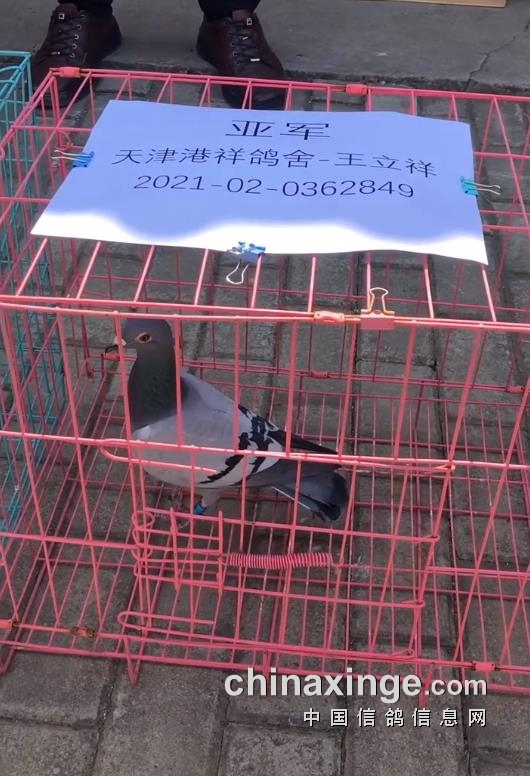 亚军
天津港祥鸽舍-王立祥
2021-02-0362849
chinaxinge.com
中国信鸽信息网